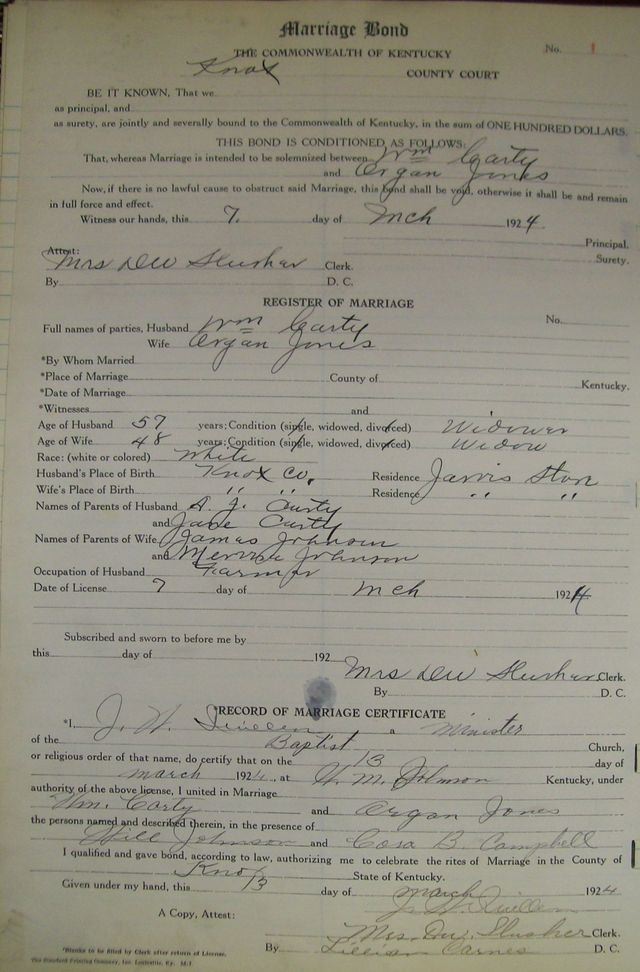 Marriage Bond
THE COMMONWEALTH OF KENTUCKY No. 1
Knox COUNTY COURT
BE IT KNOWN, That we
as principal, and
as surety, are jointly and severally bound to the Commonwealth of Kentucky, in the sum of ONE HUNDRED DOLLARS.
THIS BOND IS CONDITIONED AS FOLLOWS:
That, whereas Marriage is intended to be solemnized between Wm Carty
and Organ Jones
Now, if there is no lawful cause to obstruct said Marriage, this bond shall be void, otherwise it shall be and remain
in full force and effect.
Witness our hands, this 7. day of Mch 1924
Principal.
Attest: Surety.
Mrs DW Slusher Clerk.
By D. C.
REGISTER OF MARRIAGE
Full names of parties, Husband Wm Carty No.
Wife Organ Jones
*By Whom Married
*Place of Marriage County of Kentucky.
*Date of Marriage
*Witnesses and
Age of Husband 57 years; Condition (single, widowed, divorced) Widower
Age of Wife 48 years; Condition (single, widowed, divorced) Widow
Race: (white or colored) White
Husband's Place of Birth Knox Co. Residence Jarvis Store
Wife's Place of Birth " " Residence " "
Names of Parents of Husband A. J. Carty
and Jane Carty
Names of Parents of Wife James Johnson
and Johnson
Occupation of Husband Farmer
Date of License 7 day of Mch 1924
Subscribed and sworn to before me by
this day of 192
Mrs DW Slusher Clerk.
By D. C.
RECORD OF MARRIAGE CERTIFICATE
*I, J. W. a Minister
of the Baptist Church,
or religious order of that name, do certify that on the 13 day of
march 1924, at W. M. Johnson Kentucky, under
authority of the above license, I united in Marriage
Wm. Carty and Organ Jones
the persons named and described therein, in the presence of
Will Johnson and Cora B. Campbell
I qualified and gave bond, according to law, authorizing me to celebrate the rites of Marriage in the County of
Knox State of Kentucky.
Given under my hand, this 13 day of march 1924
J. W.
A Copy, Attest: Mrs. D.W. Slusher Clerk.
*Blanks to be filled by Clerk after return of License. By Lillian Carnes D. C.
The Standard Printing Company, Inc. Louisville, Ky. M-1